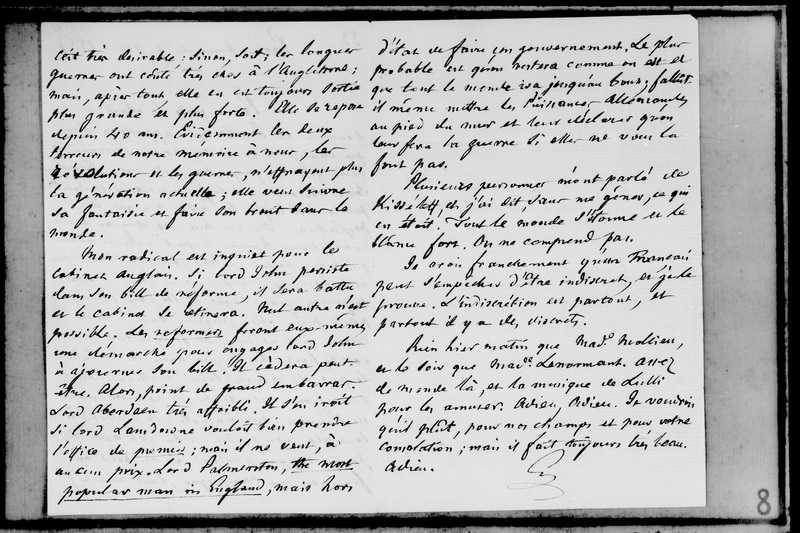 C'est très desirable : sinon, soit ; les longues
guerres ont coûté très cher à l'Angleterre ;
mais, après tout elle en est toujours sortie
plus grande et plus forte. Elle se repose
depuis 40 ans. Evidemment les deux
terreurs de notre mémoire à nous, les
révolutions et les guerres, n'effrayent plus
la génération actuelle ; elle veut suivre
sa fantaisie et faire son bruit dans le
monde.
Mon radical est inquiet pour le
cabinet Anglais. Si lord John persiste
dans son bill de réforme, il sera battu
et le cabinet se retirera. Nul autre n'est
possible. Les reformers feront eux-mêmes
une démarche pour engager lord John
à ajourner son bill. Il cèdera peut-
être. Alors, point de grand embarras.
Lord Aberdeen très affaibli. Il s'en iroit
si lord Lansdowne vouloit bien prendre
l'office de premier ; mais il ne veut, à
aucun prix. Lord Palmerston, the most
popular man in England, mais hors
d'état de faire un gouvernement. Le plus
probable est qu'on restera comme on est et
que tout le monde ira jusqu'au bout, fallût-
il même mettre les Puissances Allemandes
au pied du mur et leur déclarer qu'on
leur fera la guerre si elles ne vous la
font pas.
Plusieurs personnes m'ont parlé de
Kisséleff et j'ai dit, sans me gêner, ce qui
en étoit. Tout le monde s'étonne et le
blâme fort. On ne comprend pas.
Je crois franchement qu'un Français
peut s'empêcher d'être indiscret, et je le
prouve. L'indiscrétion est partout, et
partout il y a des discrets.
Rien hier matin que Mad. Mollien,
et le soir que Made. Lenormant. Assez
de monde là, et la musique de Lulli
pour les amuser. Adieu, Adieu. Je voudrois
qu'il plût, pour nos champs et pour votre
consolation ; mais il fait toujours très beau.
Adieu.
G
8